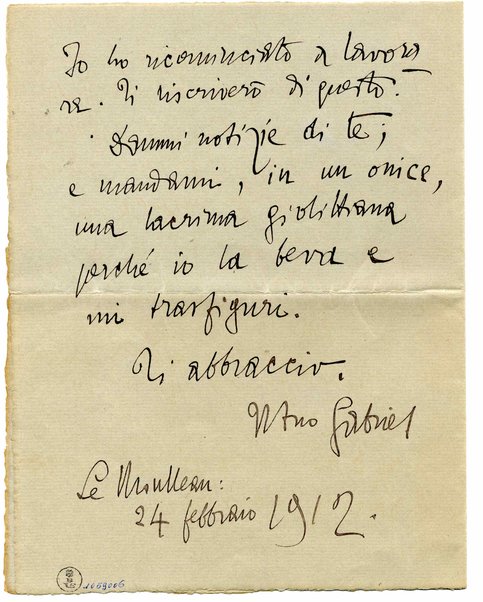 Io ho ricominciato a lavora
re. Ti riscriverò di questo.
Dammi notizie di te;
e mandami, in un onice,
una lacrima giolittiana
perché io la beva e
mi trasfiguri.
Ti abbraccio.
Il tuo Gabriel
Le Moulleau:
24 febbraio 1912.
1069006